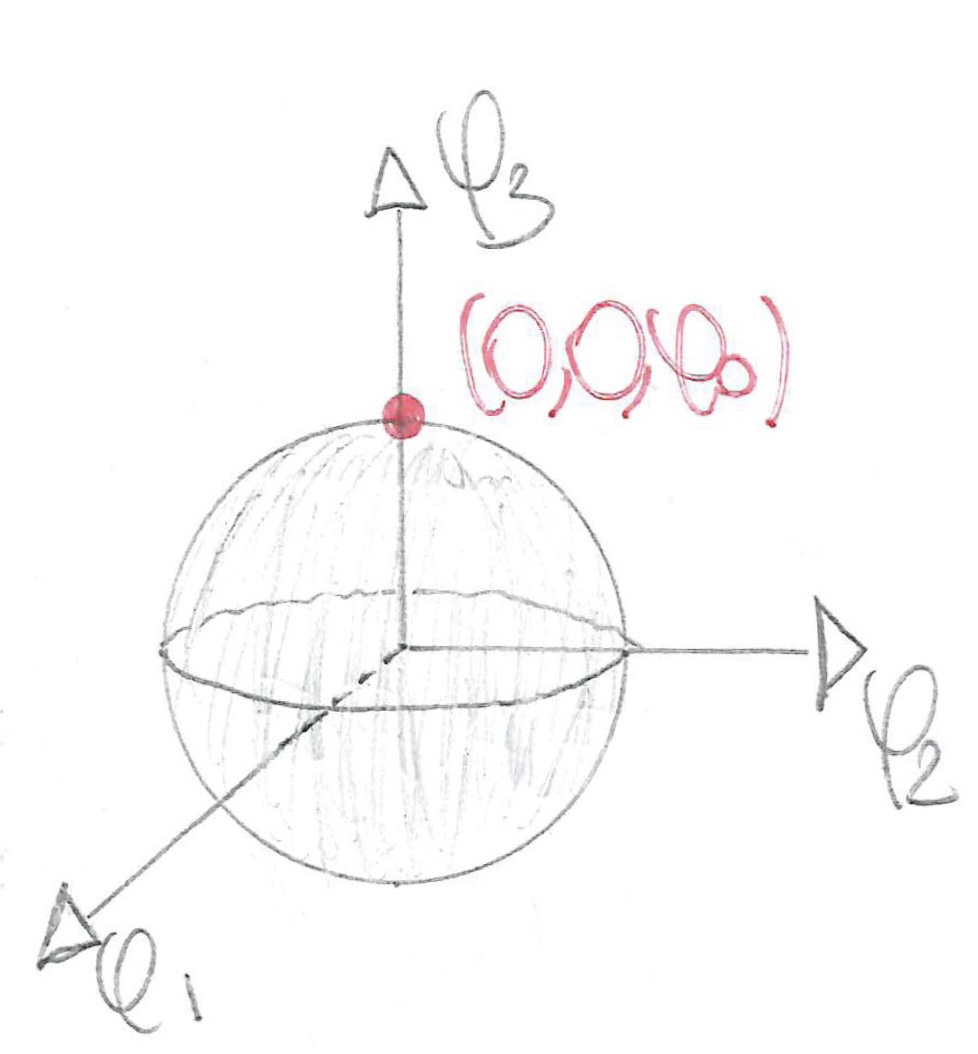 φ₃
(0,0,φ₀)
φ₂
φ₁